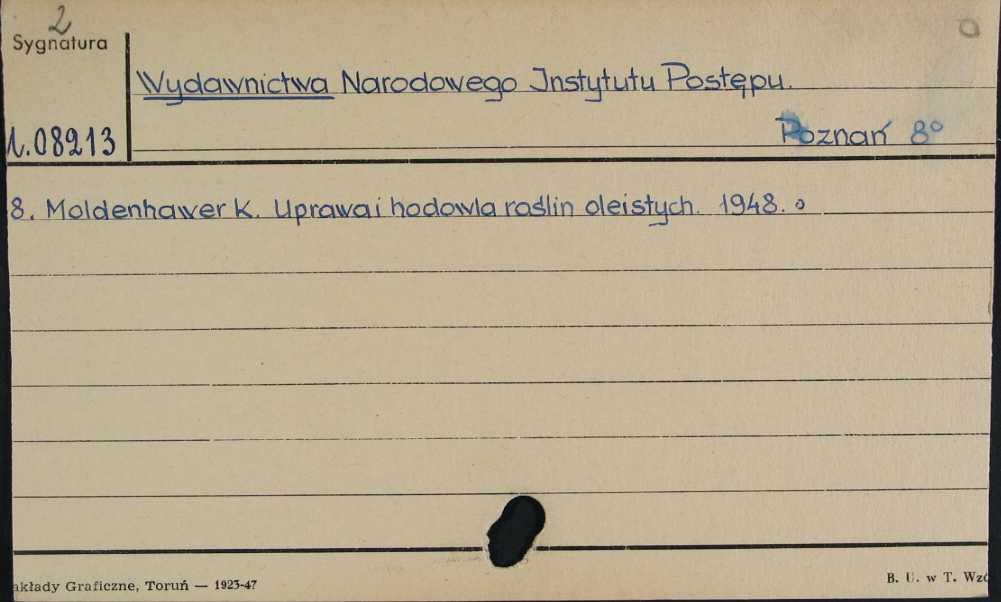 2
Sygnatura
Wydawnictwa Narodowego Instytutu Postępu.
Poznań 8°
1.08213
8. Moldenhawer K. Uprawa i hodowla roślin oleistych. 1948.
akłady Graficzne, Toruń — 1923-47
B. U. w T. Wzó